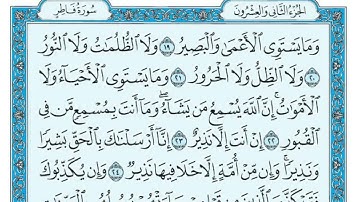 الجزء الثاني والعشرون سورة فاطر
وَمَا يَسْتَوِي الْأَعْمَىٰ وَالْبَصِيرُ ١٩ وَلَا الظُّلُمَاتُ وَلَا النُّورُ
٢٠ وَلَا الظِّلُّ وَلَا الْحَرُورُ ٢١ وَمَا يَسْتَوِي الْأَحْيَاءُ وَلَا
الْأَمْوَاتُ إِنَّ اللَّهَ يُسْمِعُ مَن يَشَاءُ وَمَا أَنتَ بِمُسْمِعٍ مَّن فِي
الْقُبُورِ ٢٢ إِنْ أَنتَ إِلَّا نَذِيرٌ ٢٣ إِنَّا أَرْسَلْنَاكَ بِالْحَقِّ بَشِيرًا
وَنَذِيرًا وَإِن مِّنْ أُمَّةٍ إِلَّا خَلَا فِيهَا نَذِيرٌ ٢٤ وَإِن يُكَذِّبُوكَ